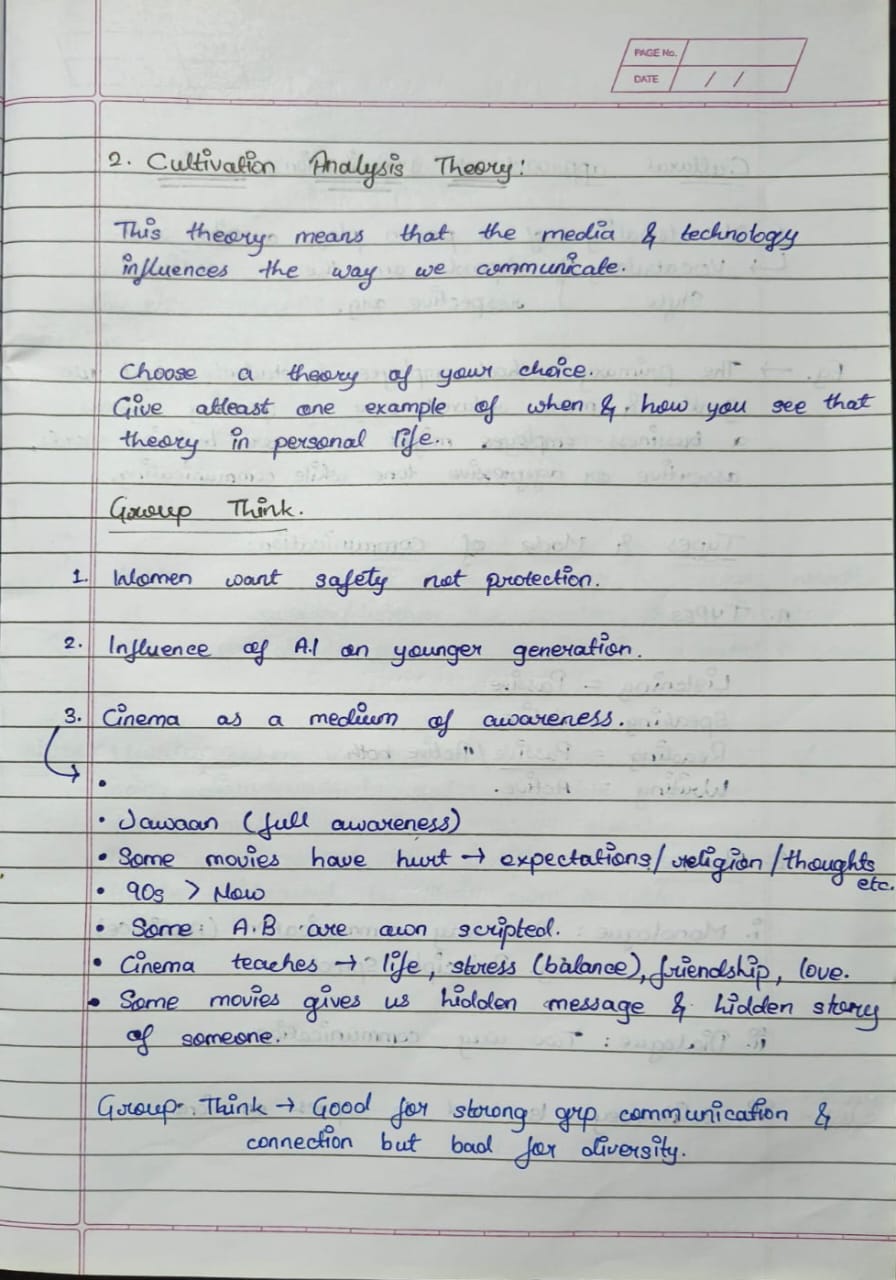 PAGE No.
DATE / /
2. Cultivation Analysis Theory:
This theory means that the media & technology
influences the way we communicate.
Choose a theory of your choice.
Give atleast one example of when & how you see that
theory in personal life.
Group Think.
1. Women want safety not protection.
2. Influence of A.I on younger generation.
3. Cinema as a medium of awareness.
• Jawaan (full awareness)
• Some movies have hurt → expectations/religion/thoughts
etc.
• 90s > Now
• Some: A.B are own scripted.
• Cinema teaches → life, stress (balance), friendship, love.
• Some movies gives us hidden message & hidden story
of someone.
Group Think → Good for strong grp communication &
connection but bad for diversity.